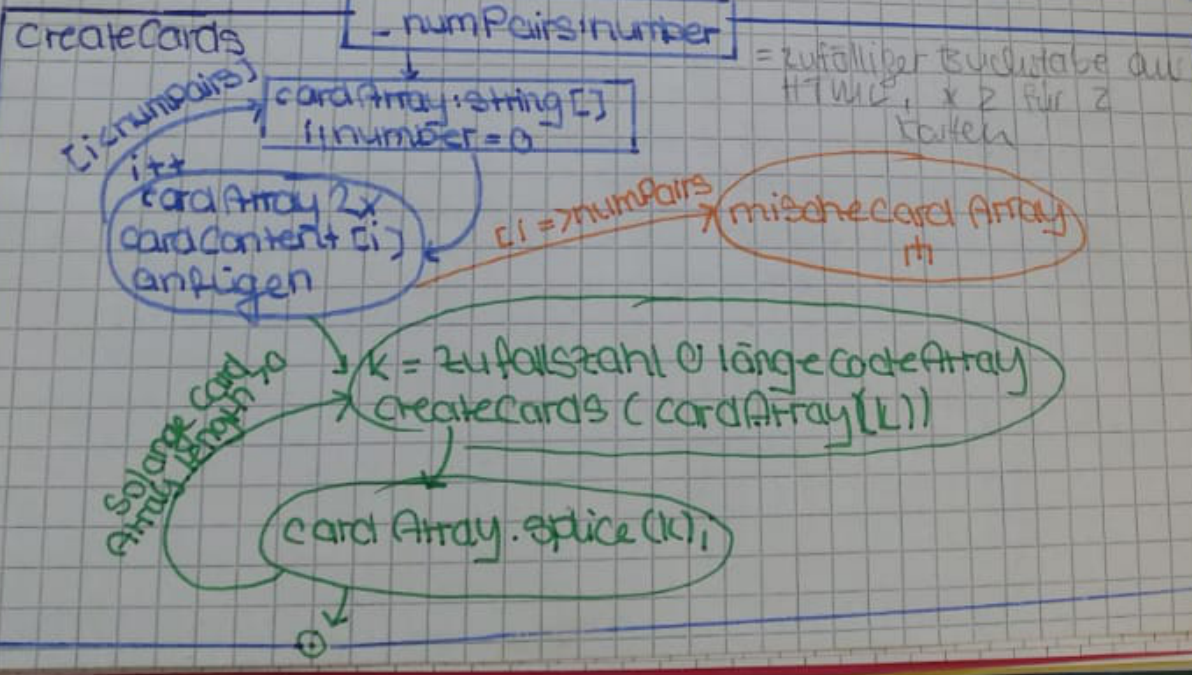 createCards
- numPairs:number
= zufälliger Buchstabe aus
HTML, x 2 für 2
Karten
[i<numpairs]
cardArray:string[]
i:number=0
i++
cardArray 2x
cardContent[i]
anfügen
[i=>numPairs
mischeCardArray
k = zufallszahl 0; länge codeArray
createCards (cardArray[k])
solange Card
Array length>0
card Array.splice(k);